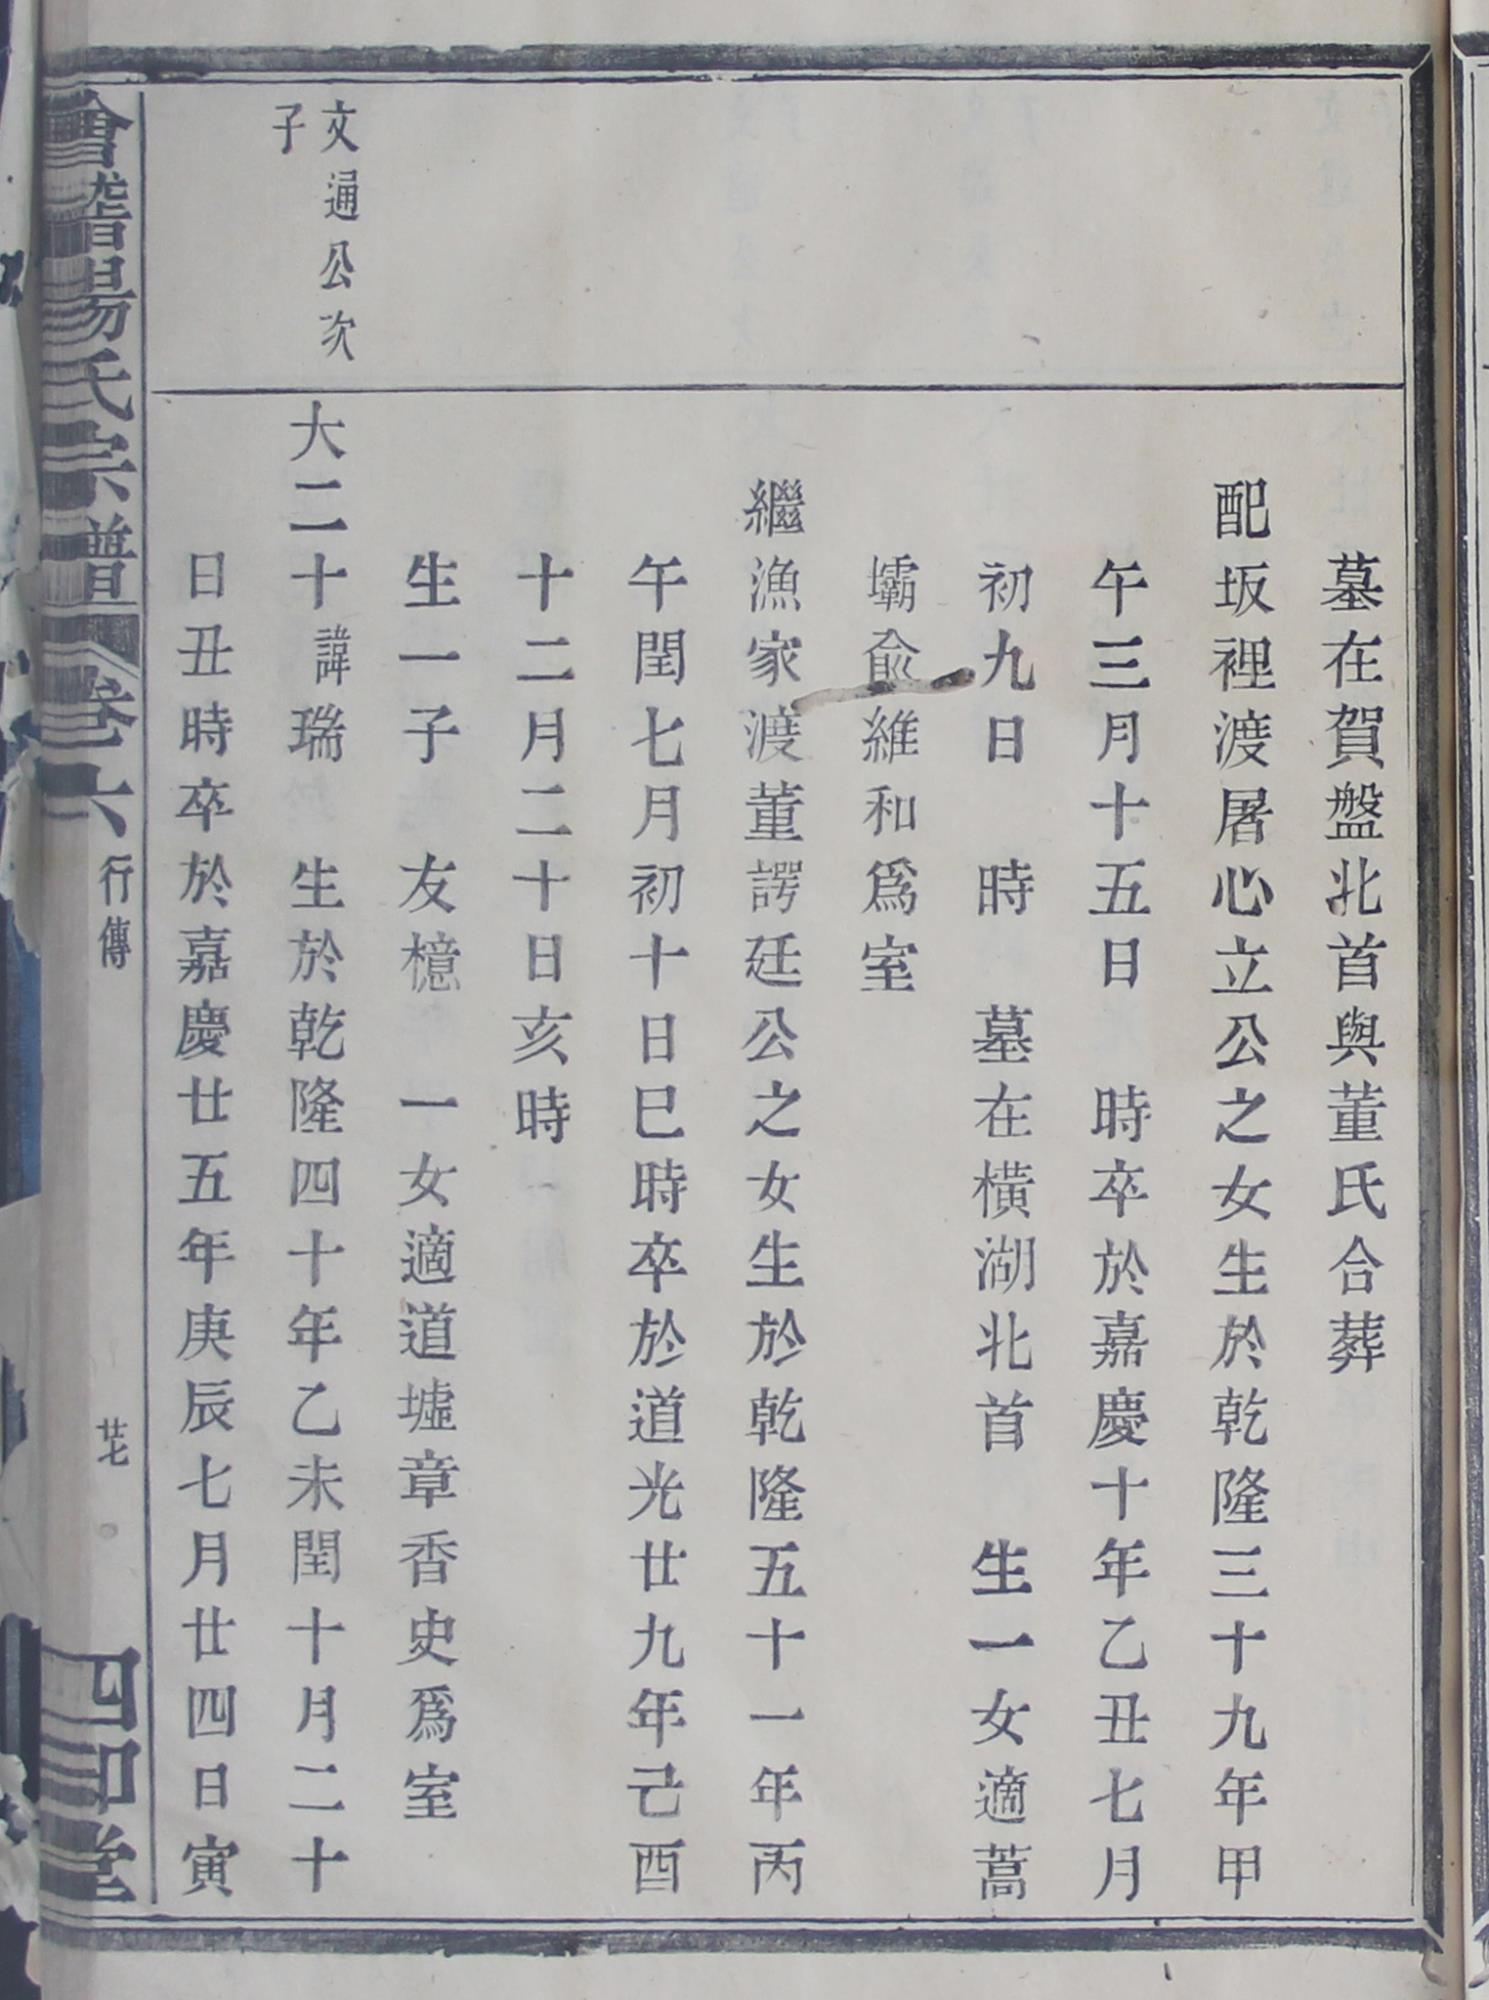 墓在賀盤北首與董氏合葬
配坂裡渡屠心立公之女生於乾隆三十九年甲
午三月十五日　時卒於嘉慶十年乙丑七月
初九日　時　墓在橫湖北首　生一女適蒿
壩兪維和爲室
繼漁家渡董諤廷公之女生於乾隆五十一年丙
午閏七月初十日巳時卒於道光廿九年己酉
十二月二十日亥時
生一子　友檍　一女適道墟章香史爲室
文通公次
子
大二十諱瑞　生於乾隆四十年乙未閏十月二十
日丑時卒於嘉慶廿五年庚辰七月廿四日寅
會稽楊氏宗譜　卷六　行傳　廿七　四知堂